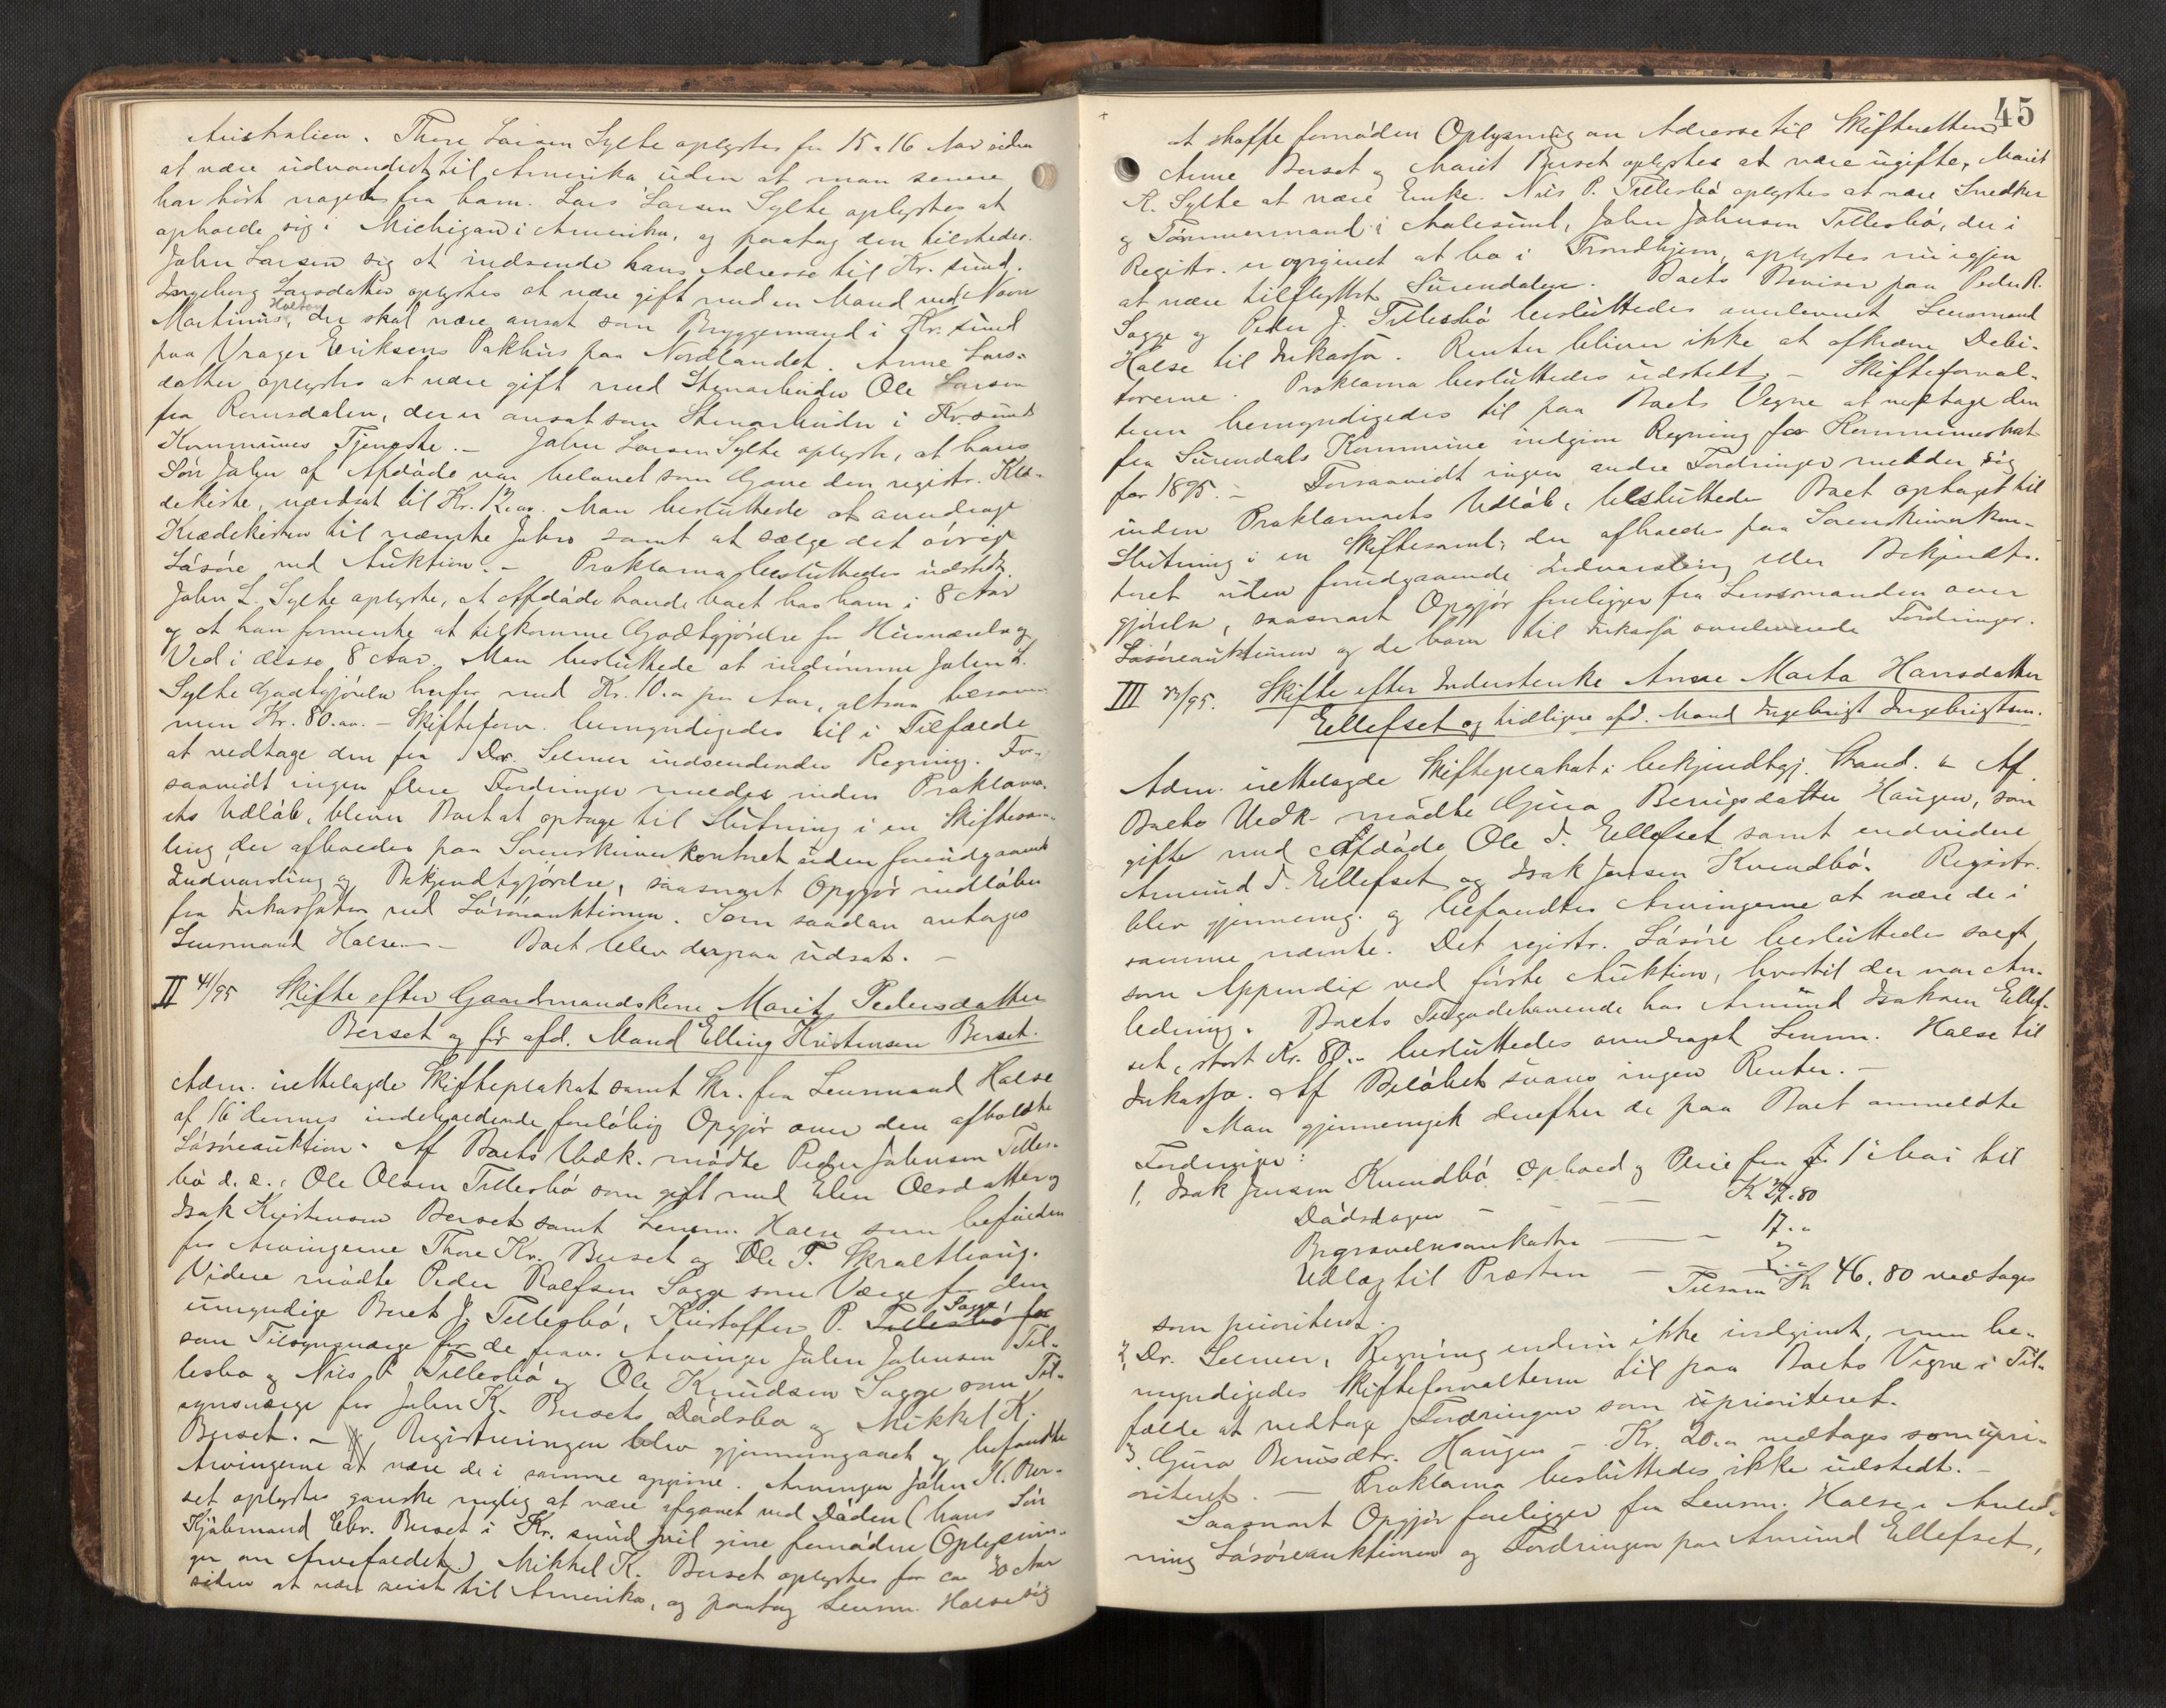 Australien. Thore Larsen Sylte oplystes for 15 à 16 Aar siden
at være udvandret til Amerika uden at man senere
har hört noget fra ham. Lars Larsen Sylte oplystes at
opholde sig i Michigan i Amerika, og paatog den tilstedev.
John Larsen sig at indsende hans Adresse til Kr.sund.
Ingeborg Larsdatter oplystes at være gift med en Mand ved Navn
Martinus Halsen, der skal være ansat som Bryggemand i Kr.sund
paa Vrager Eriksens Pakhus paa Nordlandet. Anne Lars-
datter oplystes at være gift med Stenarbeider Ole Larsen
fra Romsdalen, der er ansat som Stenarbeider i Kr.sunds
Kommunes Tjeneste. – John Larsen Sylte oplyste, at hans
Sön John af Afdöde var belovet som Gave den registr. Klæ-
dekiste, værdsat til Kr. 12.00. Man besluttede at overdrage
Klædekisten til nævnte John samt at sælge det övrige
Lösöre ved Auktion. – Proklama besluttedes udstedt.
John L. Sylte oplyste, at Afdöde havde boet hos ham i 8 Aar
og at han formente at tilkomme Godtgjörelse for Husværelse og
Ved i disse 8 Aar. Man besluttede at indrömme John L.
Sylte Godtgjörelse herfor med Kr. 10.00 pr Aar, altsaa tilsam-
men Kr. 80.00. – Skifteforv. bemyndigedes til i Tilfælde
at vedtage den fra Dr. Selmer indsendendes Regning. For-
saavidt ingen flere Fordringer meldes inden Proklama-
ets Udlöb, bliver Boet at optage til Slutning i en Skiftesam-
ling, der afholdes paa Sorenskriverkontoret uden forudgaaende
Indvarsling og Bekjendtgjörelse, saasnart Opgjör indlöber
fra Inkassator ved Lösöreauktionen. Som saadan antoges
Lensmand Halse. – Boet blev derpaa udsat. –
II 41/95 Skifte efter Gaardmandskone Marit Pedersdatter
Berset og för afd. Mand Elling Kristensen Berset.
Adm. irettelagde Skifteplakat samt Skr. fra Lensmand Halse
af 16 dennes indeholdende foreløbig Opgjör over den afholdte
Lösöreauktion. Af Boets Vedk. mödte Peder Johnsen Tilles-
bö d. e., Ole Olsen Tillesbö som gift med Elen Olsdatter og
Isak Kristensen Berset samt Lensm. Halse som befuldm.
for Arvingerne Thore Kr. Berset og Ole T. Skralthaug.
Videre mödte Peder Rolfsen Sogge som Værge for den
umyndige Beret J. Tillesbö, Kristoffer P. Sogge
som Tilsynsværge for de frav. Arvinger John Johnsen Til-
lesbö og Nils P. Tillesbö og Ole Knudsen Sogge som Til-
synsværge for John K. Bersets Dödsbo og Mikkel K.
Berset. – Registreringen blev gjennemgaaet og befandtes
Arvingerne at være de i samme opgivne. Arvingen John K. Ber-
set oplystes ganske nylig at være afgaaet ved Döden (hans Sön
Kjöbmand Chr. Berset i Kr.sund vil give fornödne Oplysnin-
ger om Arvefaldet.) Mikkel K. Berset oplystes for ca 30 Aar
siden at være reist til Amerika, og paatog Lensm. Halse sig
45
at skaffe fornöden Oplysning om Adresse til Skifteretten.
Anne Berset og Marit Berset oplystes at være ugifte, Marit
A. Sylte at være Enke. Nils P. Tillesbö oplystes at være Snedker
og Tömmermand i Aalesund, John Johnsen Tillesbö, der i
Registr. er opgivet at bo i Trondhjem, oplystes nu igjen
at være tilflyttet Surendalen. Boets Beviser paa Peder R.
Sogge og Peder J. Tillesbö besluttedes overleveret Lensmand
Halse til Inkasso. Renter bliver ikke at afkræve Debi-
torerne. Proklama besluttedes udstedt. – Skifteforval-
teren bemyndigedes til paa Boets Vegne at vedtage den
fra Surendals Kommune indgivne Regning for Kommuneskat
for 1895. – Forsaavidt ingen andre Fordringer melder sig
inden Proklamaets Udlöb, besluttedes Boet optaget til
Slutning i en Skiftesaml., der afholdes paa Sorenskriverkon-
toret uden forudgaaende Indvarsling eller Bekjendt-
gjörelse, saasnart Opgjör foreligger fra Lensmanden over
Lösöreauktionen og de ham til Inkasso overleverede Fordringer.
III 33/95. Skifte efter Inderstenke Anne Marta Hansdatter
Ellefset og tidligere afd. Mand Ingebrigt Ingebrigtsen.
Adm. irettelagde Skifteplakat i bekjendtgj. Stand. – Af
Boets Vedk. mödte Guro Berugsdatter Haugen, som
gift med Afdöde Ole I. Ellefset samt endvidere
Amund I. Ellefset og Isak Jensen Kvendbö. Registr.
blev gjennemg. og befandtes Arvingerne at være de i
samme nævnte. Det registr. Lösöre besluttedes solgt
som Appendix ved förste Auktion, hvortil der var An-
ledning. Boets Tilgodehavende hos Amund Isaksen Ellef-
set, stort Kr. 80.– besluttedes overdraget Lensm. Halse til
Inkasso. Af Belöbet svares ingen Renter. –
Man gjennemgik derefter de paa Boet anmeldte
Fordringer:
1, Isak Jensen Kvendbö Ophold og Pleie fra f. 1ste Mai til
Dödsdagen – – – Kr 27.80
Begravelsesomkostn. – – 17.00
Udlæg til Præsten – 2.00
Tilsam. Kr 46.80 vedtages
som prioriteret.
2, Dr. Selmer, Regning endnu ikke indgivet, men be-
myndigedes Skifteforvalteren til paa Boets Vegne i Til-
fælde at vedtage Fordringen som uprioriteret.
3. Guro Berusdtr. Haugen – Kr. 20.00 vedtages som upri-
oriteret. – Proklama besluttedes ikke udstedt. –
Saasnart Opgjör foreligger fra Lensm. Halse i Anled-
ning Lösöreauktionen og Fordringen paa Amund Ellefset,